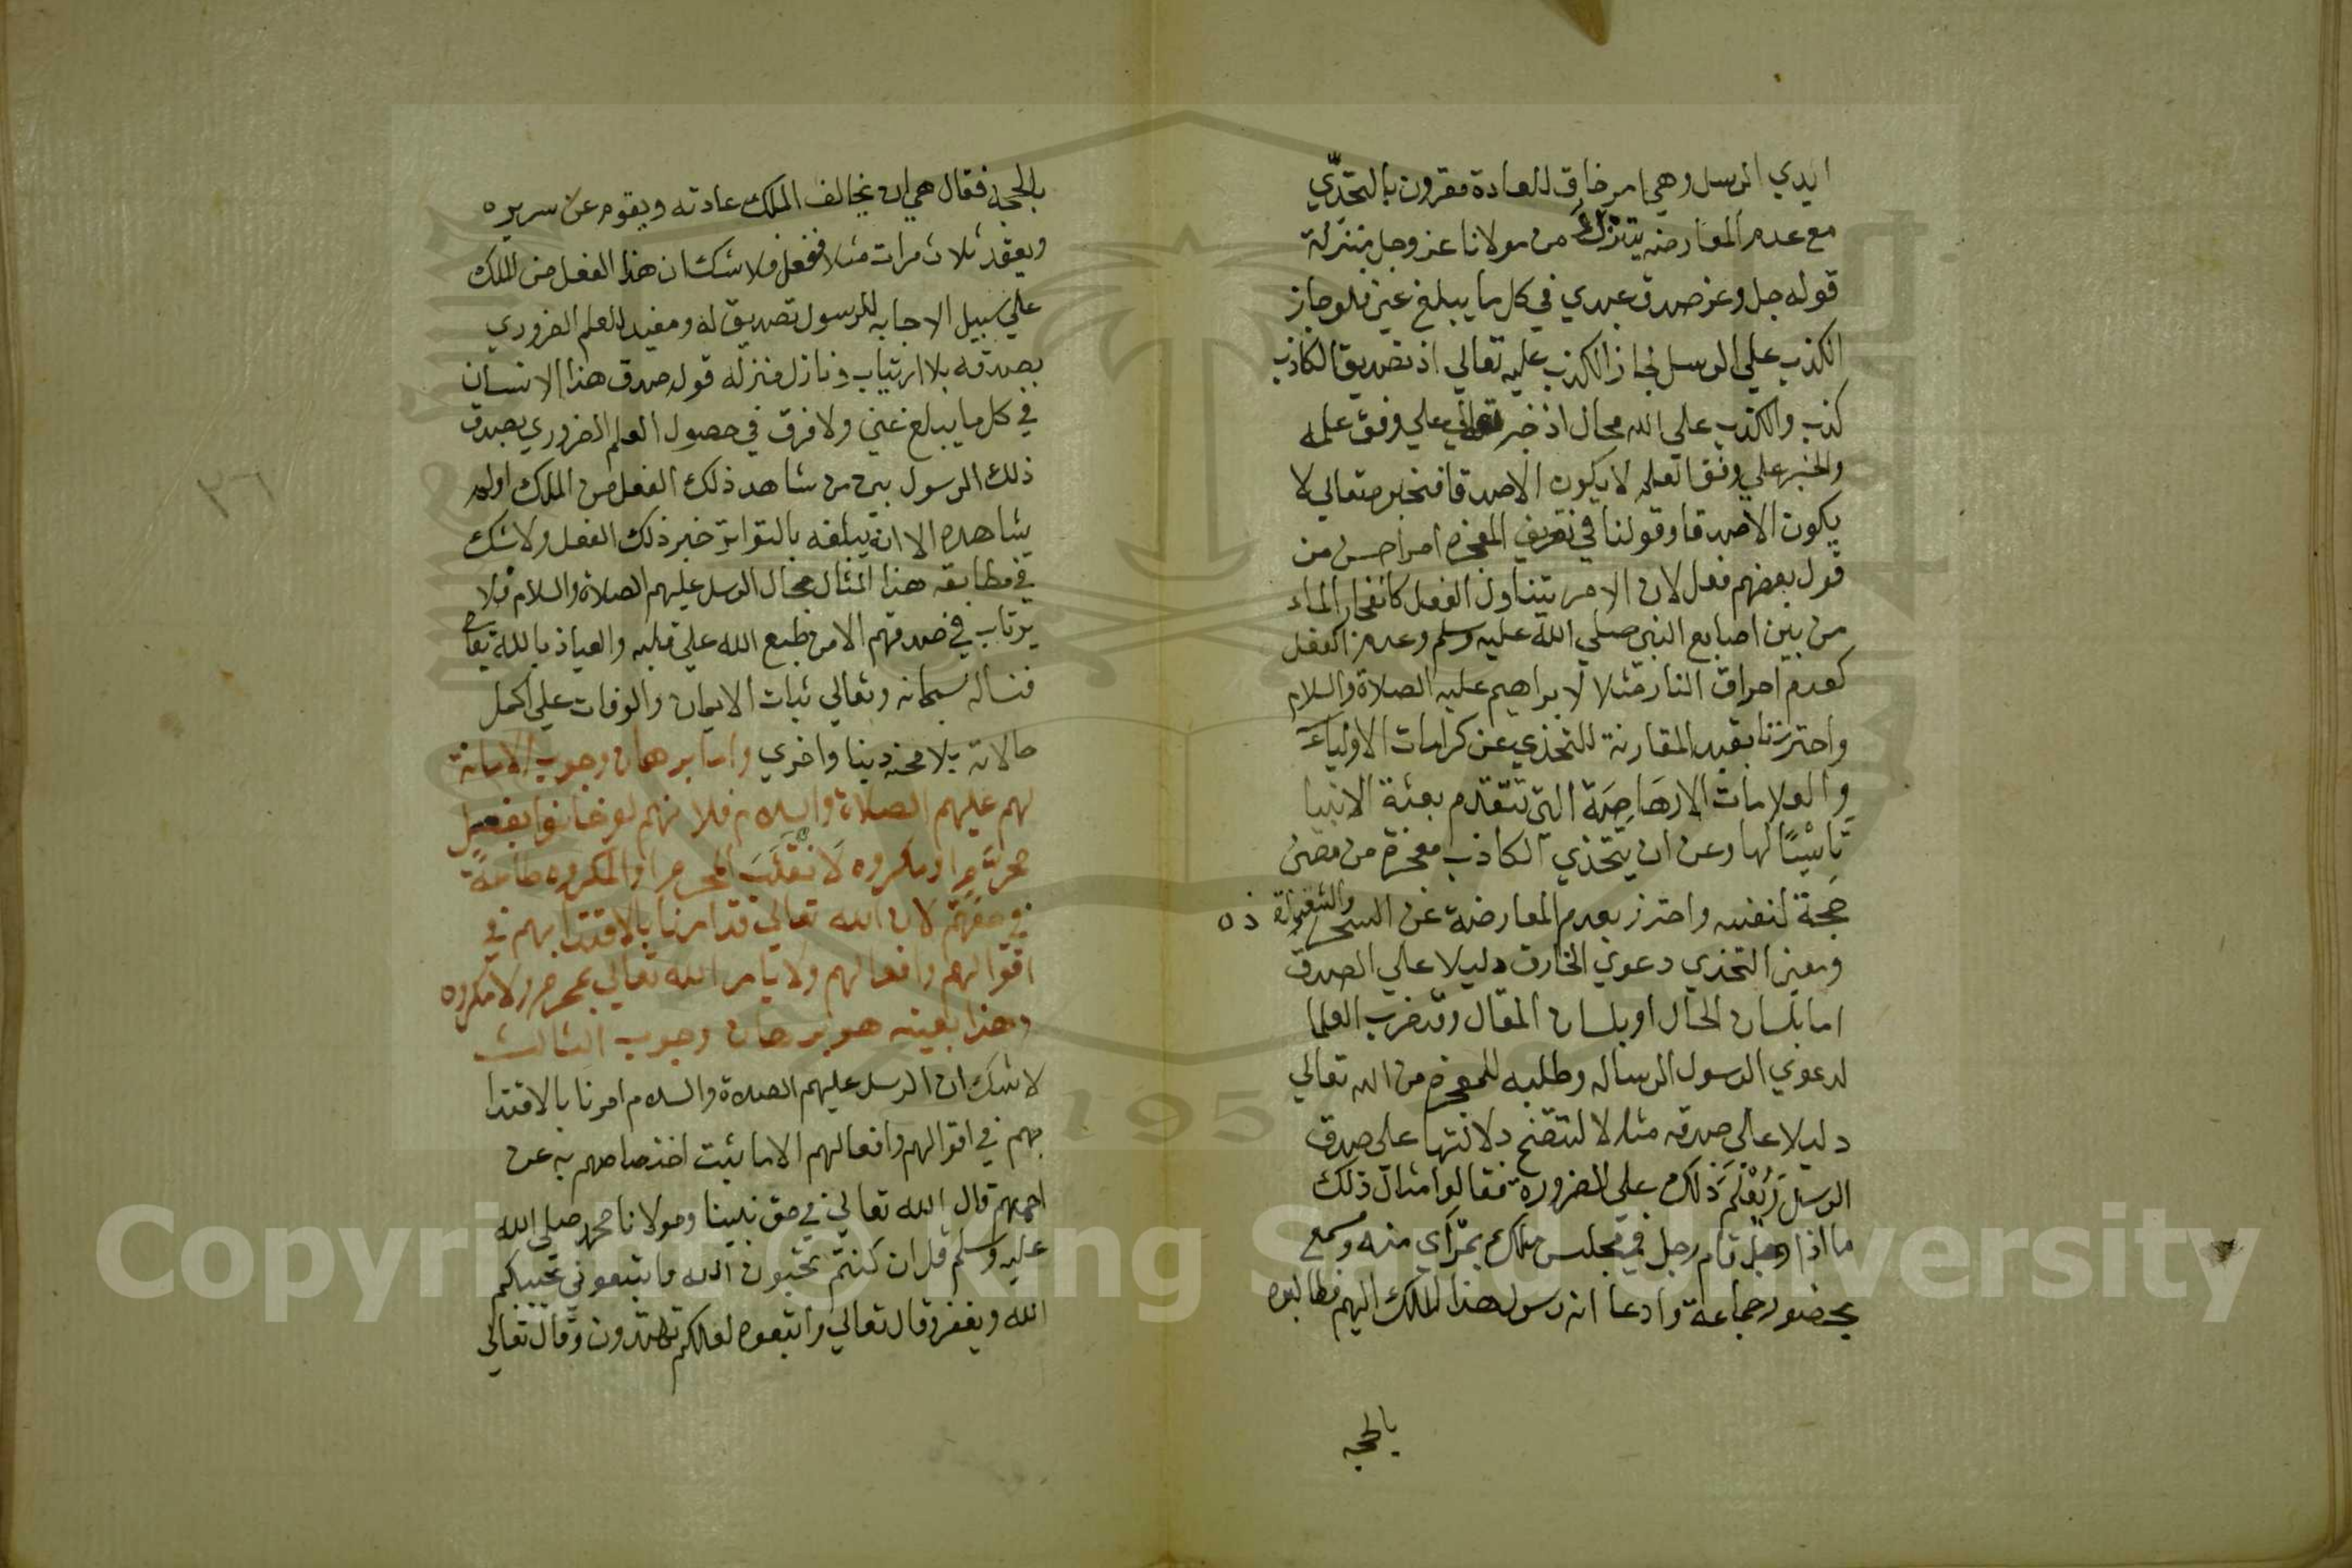 ايدي الرسل وهي امر خارق للعادة مقرون بالتحدّي
مع عدم المعارضه يتنزل من مولانا عز وجل بمنزلة
قوله جل وعز صدق عبدي في كل ما يبلغ عني فلو جاز
الكذب علي الرسل لجاز الكذب عليه تعالي اذ تصديق الكاذب
كذب والكذب علي الله محال اذ خبره تعالي علي وفق علمه
والخبر علي وفق العلم لا يكون الا صدقا فخبره تعالي لا
يكون الا صدقا وقولنا في تعريف المعجزه امر احسن من
قول بعضهم فعل لان الامر يتناول الفعل كانفجار الماء
من بين اصابع النبي صلي الله عليه وسلم وعدم الفعل
كعدم احراق النار مثلا لابراهيم عليه الصلاة والسلام
واحترزنا بقيد المقارنة للتحدي عن كرامات الاولياء
والعلامات الارهاصية التي تتقدم بعثة الانبيا
تاسيسًا لها وعن ان يتحدي الكاذب معجزة من مضي
حجة لنفسه واحترز بعدم المعارضة عن السحر والشعوذة
ومعني التحدي دعوي الخارق دليلا علي الصدق
اما بلسان الحال او بلسان المقال وقد ضرب العلما
لدعوي الرسول الرساله وطلبه للمعجزه من الله تعالي
دليلا علي صدقه مثلا لتتضح دلالتها علي صدق
الرسل ويُعْلَمَ ذلك علي الضرورة فقالوا مثال ذلك
ما اذا قام رجل في مجلس ملك بمرأي منه ومسمع
بحضور جماعة وادعا انه رسول هذا الملك اليهم فطالبوه
بالحجه
بالحجه فقال هي ان يخالف الملك عادته ويقوم عن سريره
ويقعد ثلاث مرات مثلا ففعل فلا شك ان هذا الفعل من الملك
علي سبيل الاجابه للرسول تصديق له ومفيد للعلم الضروري
بصدقه بلا ارتياب ونازل منزلة قوله صدق هذا الانسان
في كل ما يبلغ عني ولا فرق في حصول العلم الضروري بصدق
ذلك الرسول بين من شاهد ذلك الفعل من الملك اولم
يشاهده الا انه يبلغه بالتواتر خبر ذلك الفعل ولا شك
في مطابقة هذا المثال لحال الرسل عليهم الصلاة والسلام فلا
يرتاب في صدقهم الا من طبع الله علي قلبه والعياذ بالله تعالي
فنساله سبحانه وتعالي ثبات الايمان والوفات علي اكمل
حالاته بلا محنه دينا واخري واما برهان وجوب الامانة
لهم عليهم الصلاة والسلام فلانهم لو خانوا بفعل
محرّم او مكروه لانقلب المحرم او المكروه طاعةً
في حقهم لان الله تعالي قد امرنا بالاقتدا بهم في
اقوالهم وافعالهم ولا يامر الله تعالي بمحرم ولا مكروه
وهذا بعينه هو برهان وجوب الثالث
لا شك ان الرسل عليهم الصلاة والسلام امرنا بالاقتدا
بهم في اقوالهم وافعالهم الا ما ثبت اختصاصهم به عن
اممهم قال الله تعالي في حق نبينا ومولانا محمد صلي الله
عليه وسلم قل ان كنتم تحبون الله فاتبعوني يحببكم
الله ويغفر وقال تعالي واتبعوه لعلكم تهتدون وقال تعالي
٢٦
Copyright © King Saud University
1957